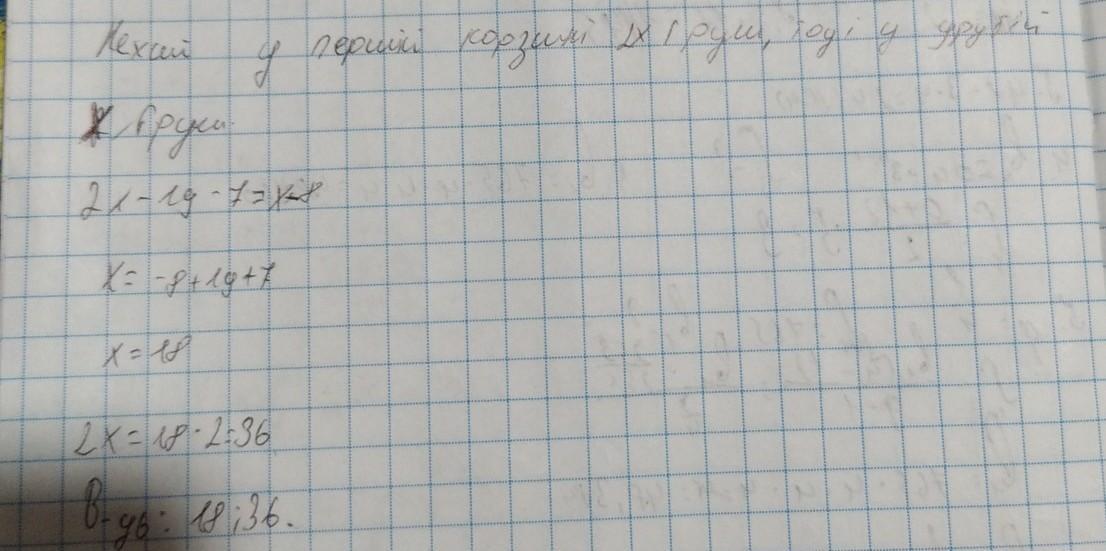 Нехай у першій корзині 2х груш, тоді у другій
х груш.
2х-19-7=х-8
х=-8+19+7
х=18
2х=18·2=36
В-дь: 18; 36.